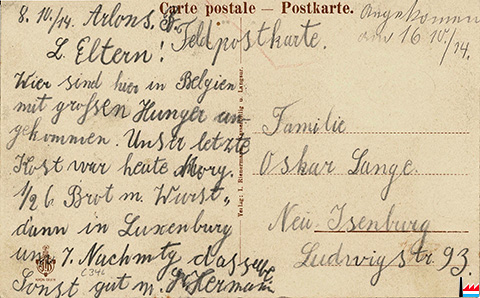 Carte postale – Postkarte.
8. 10./14. Arlons.
Feldpostkarte.
Angekommen
den 16 10./14.
L. Eltern!
Wir sind hier in Belgien
mit großen Hunger an-
gekommen. Unser letzte
Kost war heute Morg.
1/2 6 Brot m. Wurst,
dann in Luxenburg
um 7. Nachmtg dasselbe
Sonst gut m. Hermann
Familie
Oskar Lange.
Neu-Isenburg
Ludwigstr. 93.